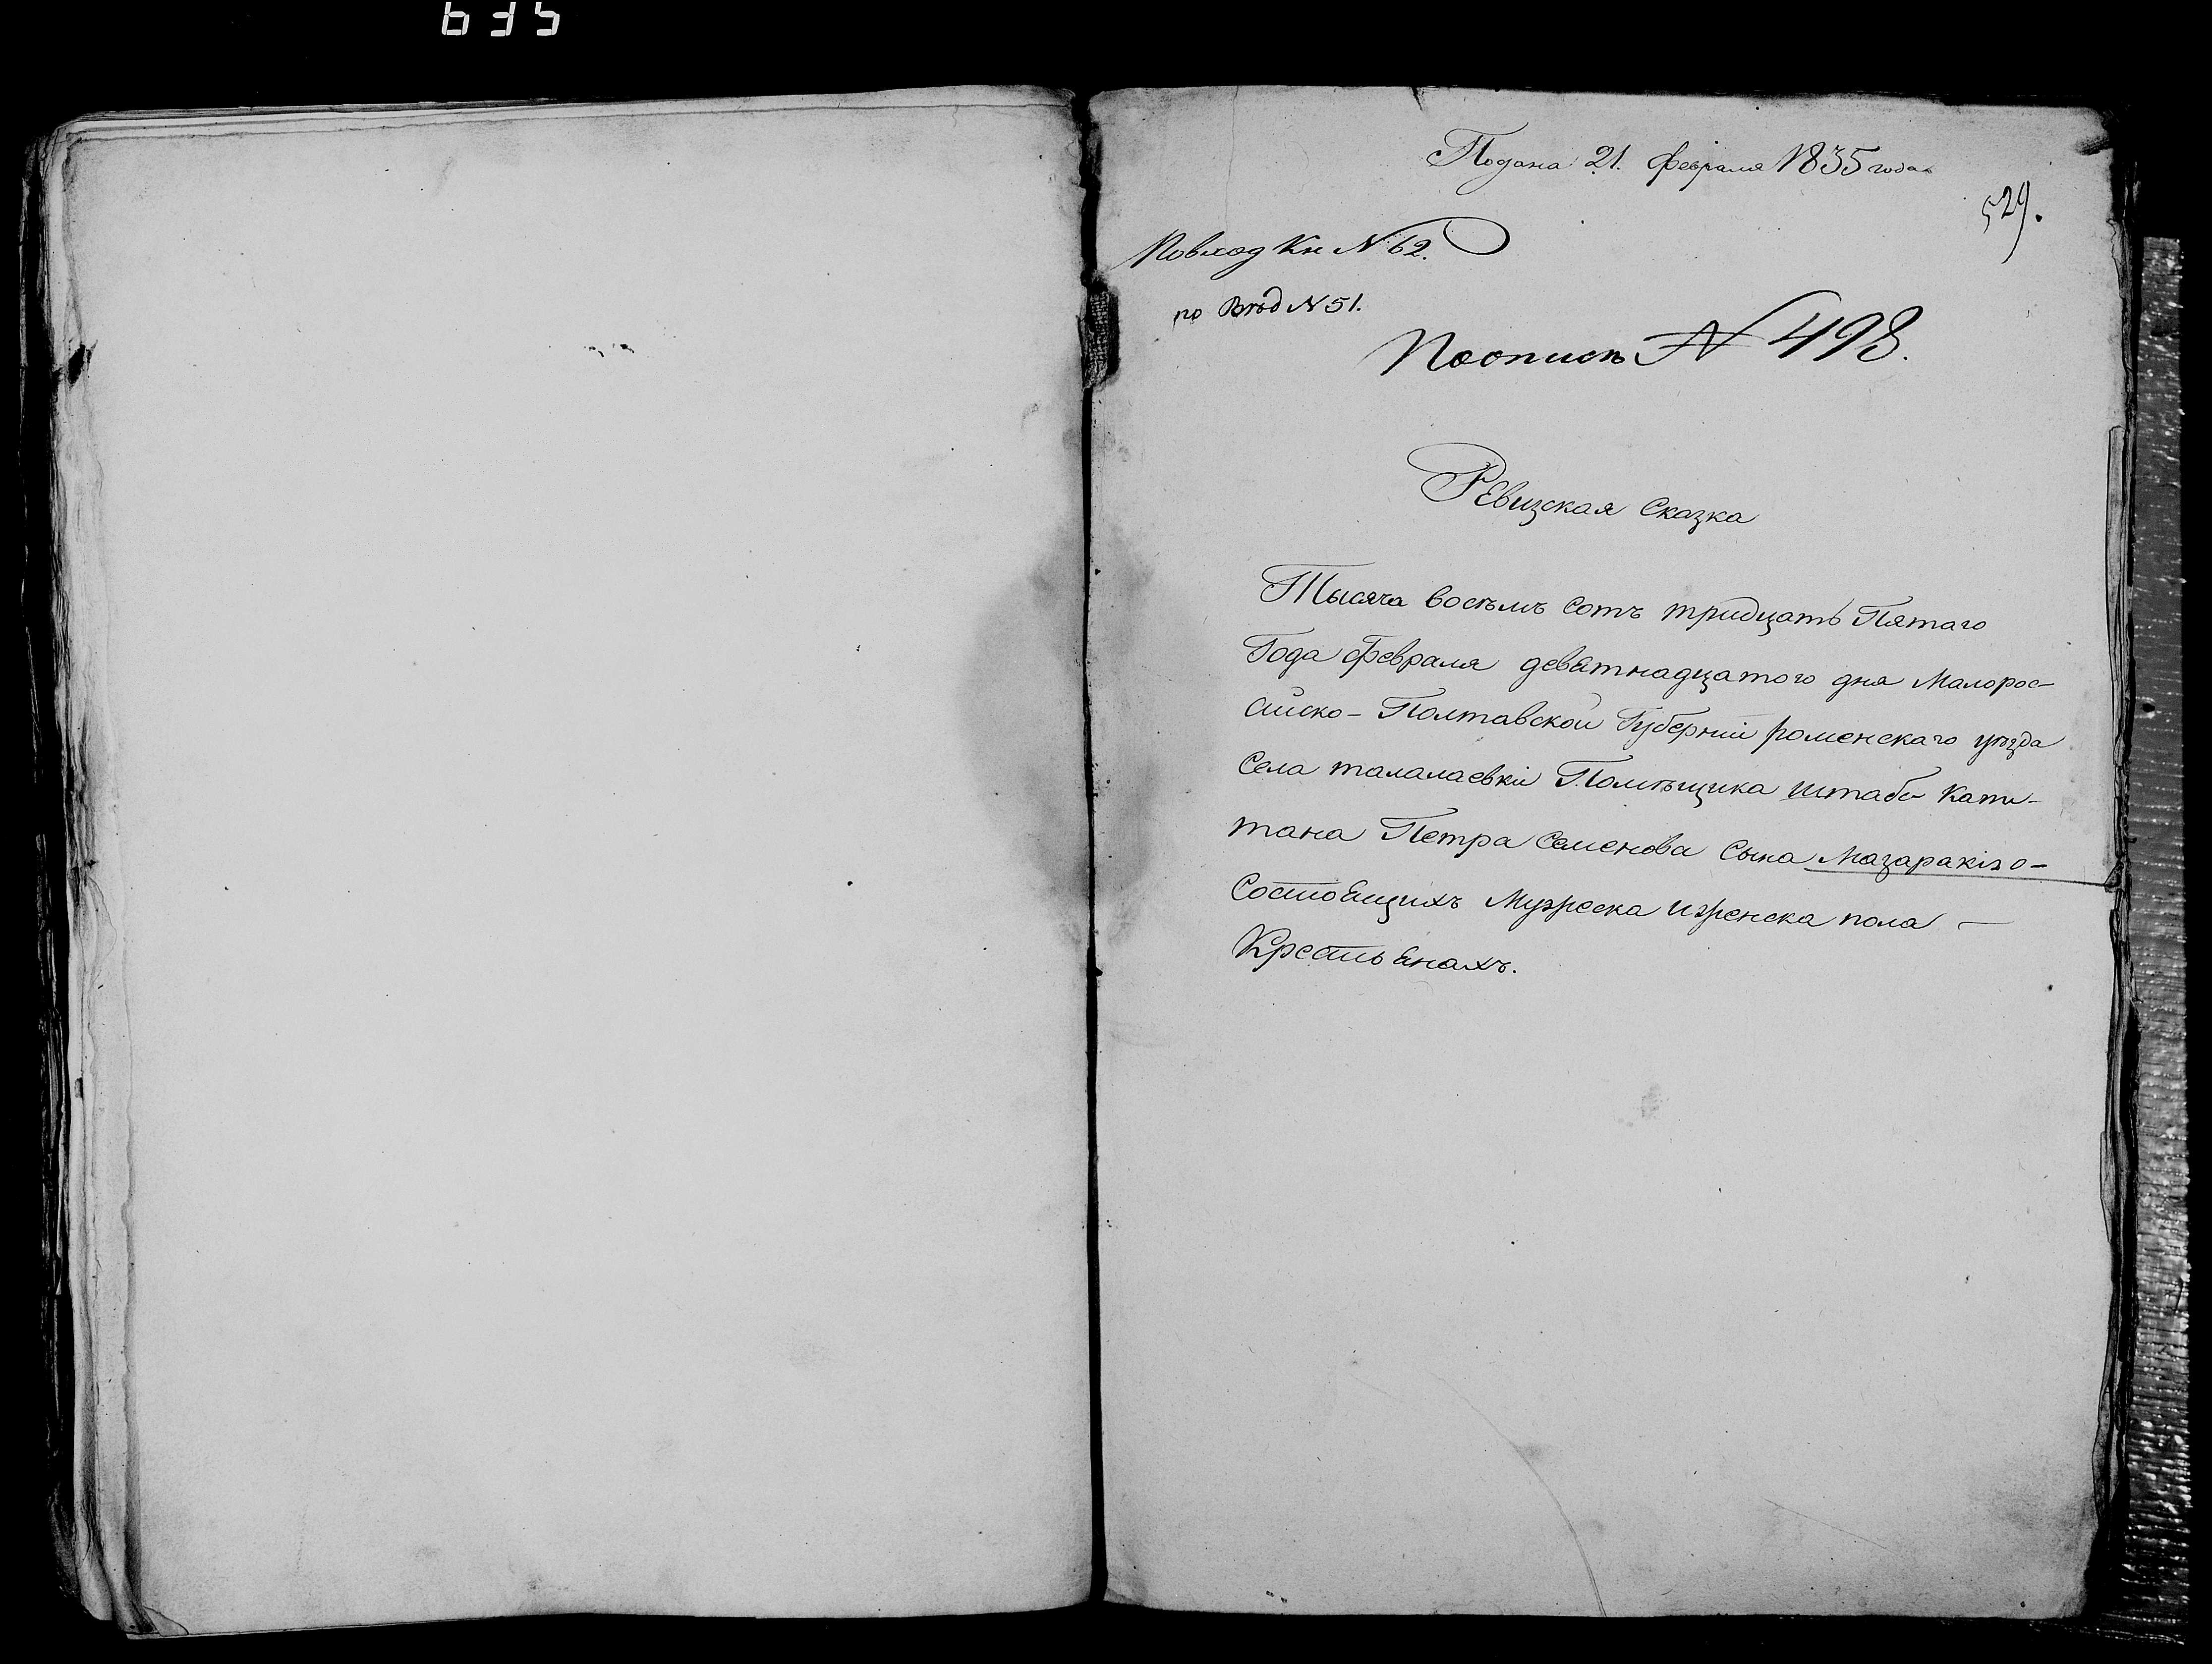 635
Подана 21. февраля 1835 года
529.
По вход Кн N 62.
по Вѣд N 51.
По описи N 498.
Ревизская Сказка
Тысяча восѣмъ сотъ тридцать Пятаго
Года февраля деветнадцатого дня Малорос-
сийско - Полтавской Губернии роменскаго уѣзда
Села талалаевки Помѣщика штабс- Капи-
тана Петра Семенова Сына Мазаракіго -
Состоещихъ Мужеска и женска пола —
Крестьенахъ.